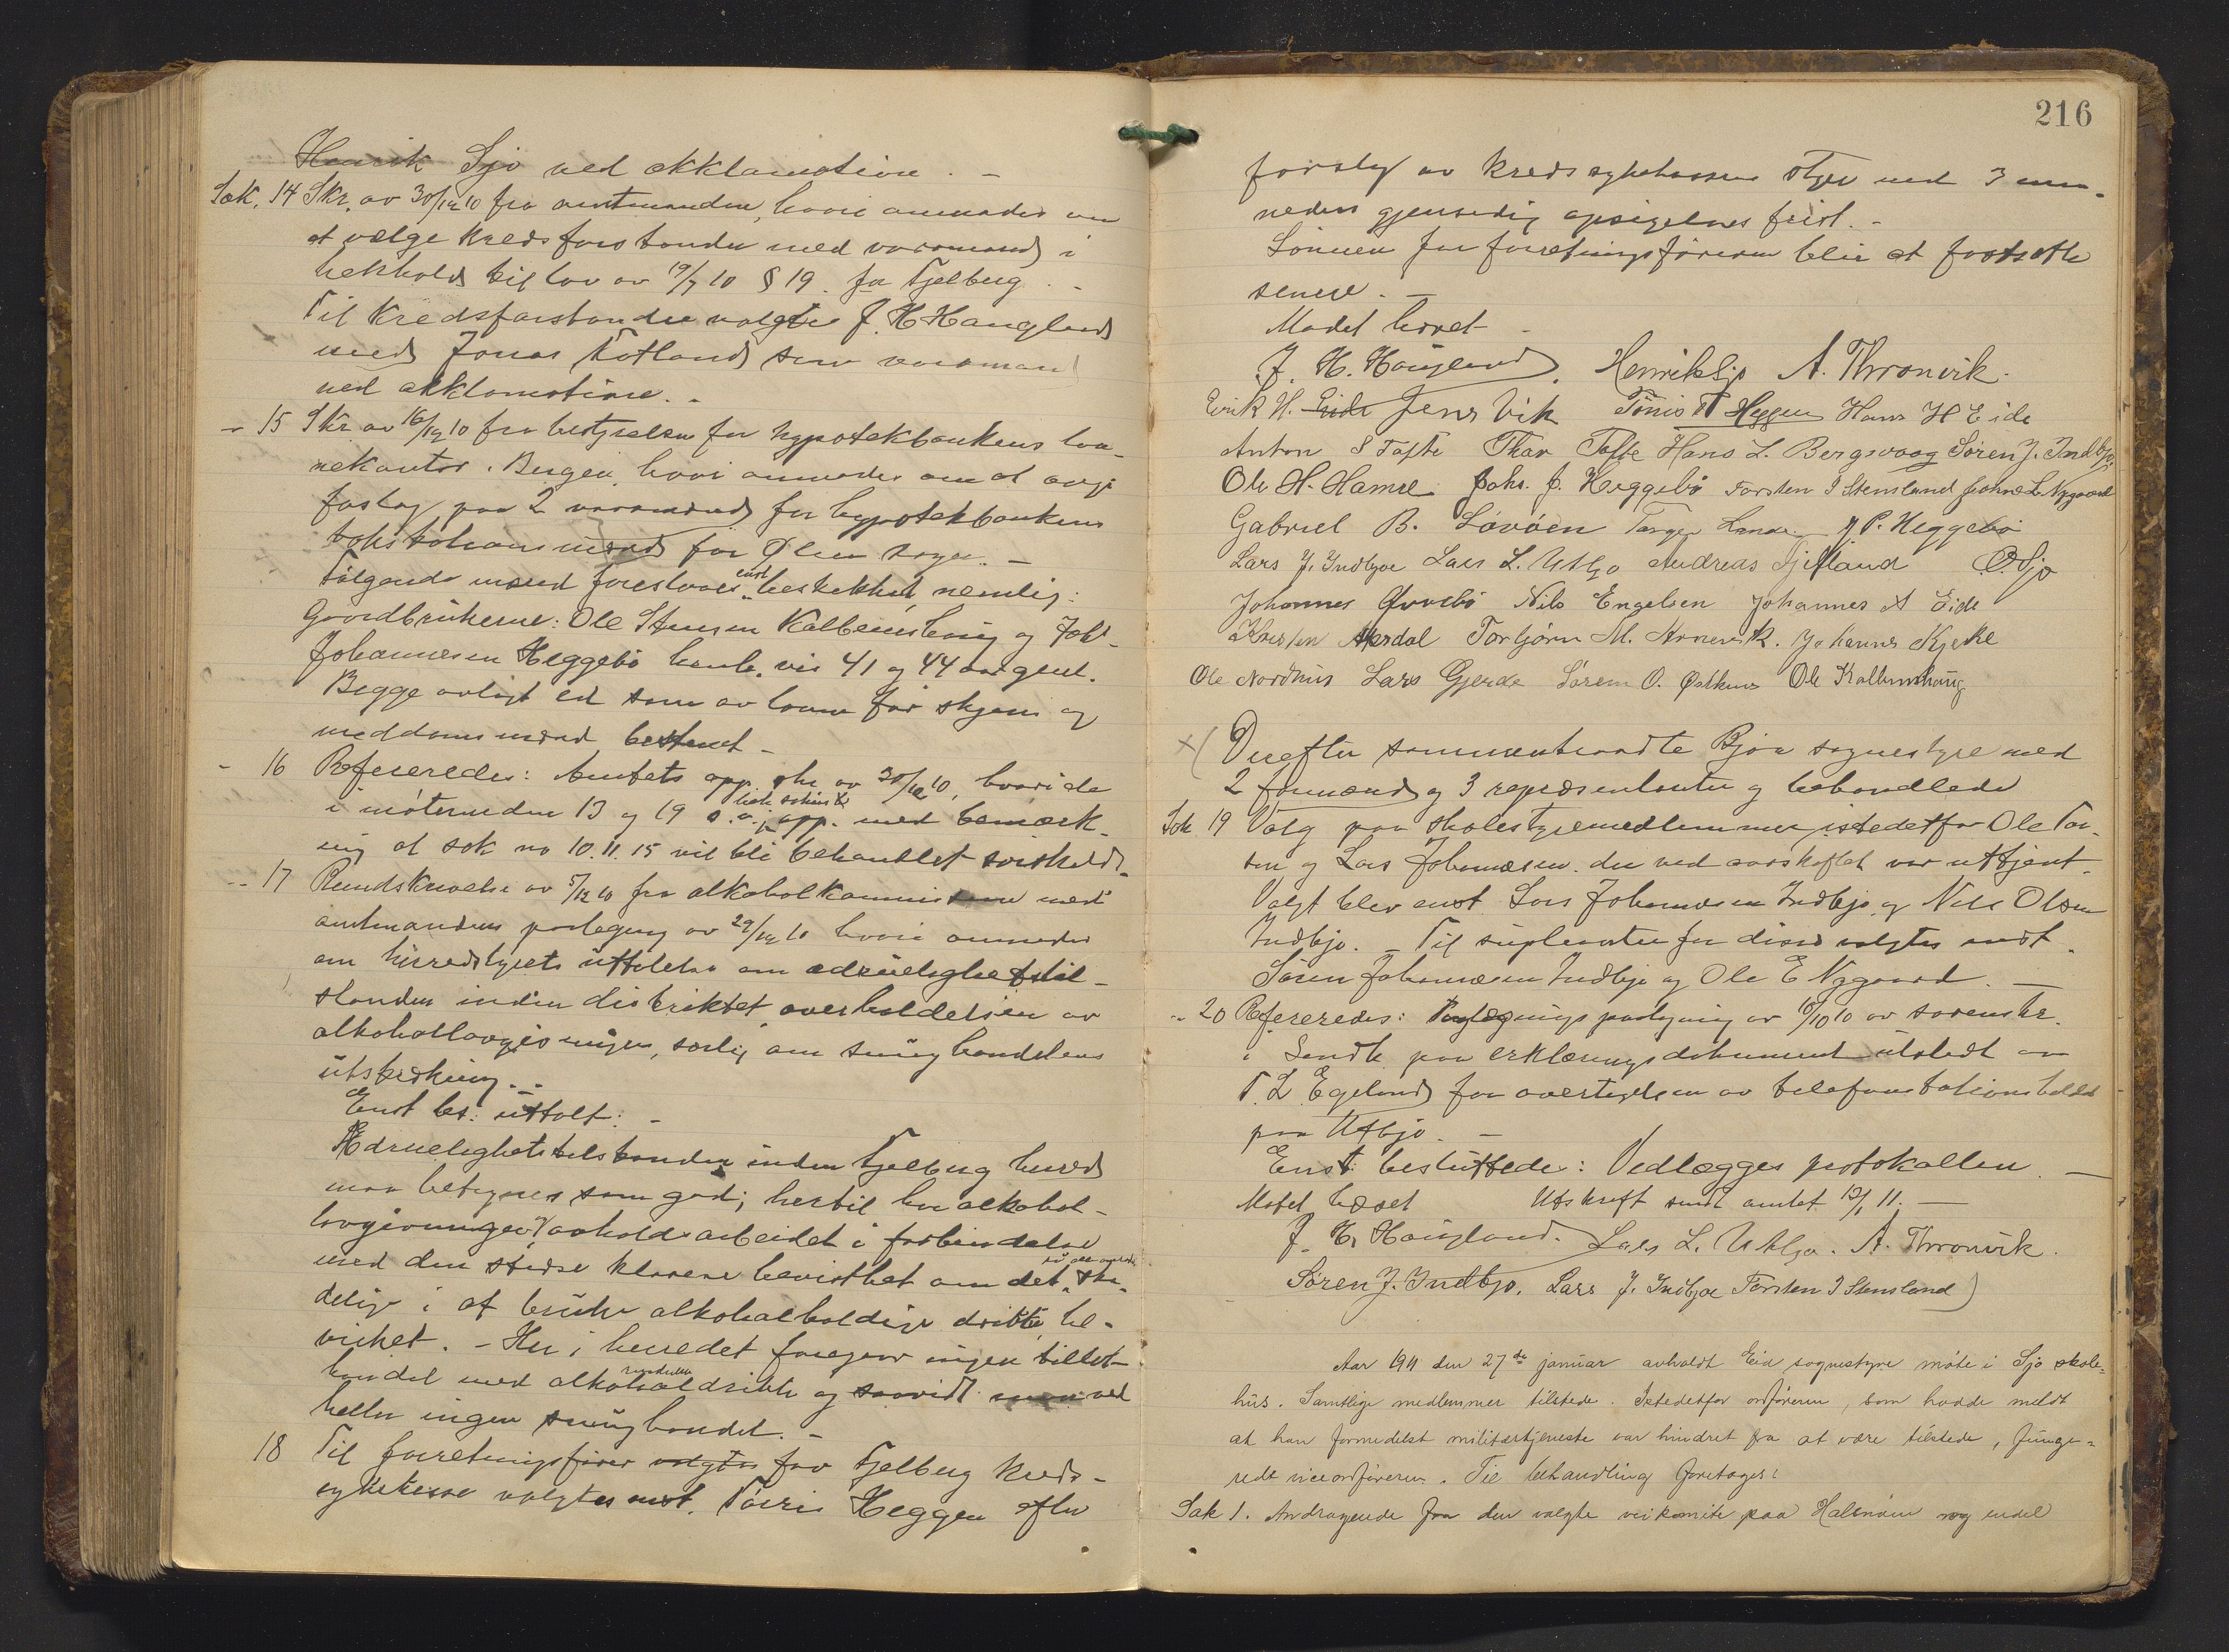 Henrik Sjo ved akklamation. -
Sak. 14 Skr. av 30/12 10 fra amtmanden, hvori anmodes om
at vælge kredsforstander med varamand i
henhold til lov av 19/7 10 § 19 for Fjelberg. -
Til kredsforstander valgtes J. H. Haugland
med Jonas Totland som varamand
ved akklamation. -
- 15 Skr av 16/12 10 fra bestyrelsen for hypotekbankens laa-
nekontor. Bergen, hvori anmodes om at avgi
forslag paa 2 varamænd for hypotekbankens
takstationsmænd for Ølen sogn. -
Følgende mænd foreslaaes enst. beskikket, nemlig:
Gaardbrukerne: Ole Stensen Kalbeinshaug og Joh.
Johannesen Heggebø henh. vis 41 og 44 aar gml.
Begge avlagt ed som av loven for skjøns og
meddomsmænd bestemt -
- 16 Refereredes: Amtets opp. skr av 30/12 10, hvori de
i møterne den 13 og 19 s. a. beh. saker er app. med bemærk-
ning at sak no 10. 11. 15 vil bli behandlet særskildt.
- 17 Rundskrivelse av 5/12 10 fra alkoholkommissionen med
amtmandens paategning av 29/12 10 hvori anmodes
om herredstyrets uttalelse om ædruelighetstil-
standen inden distriktet, overholdelsen av
alkohollovgivningen, særlig om smughandelens
utstrækning. -
Enst. bes. uttalt: -
Ædruelighetstilstanden inden Fjelberg herred
maa betegnes som god; hertil har alkohol-
lovgivningen, avholdsarbeidet i forbindelse
med den stedse klarere bevissthet om det ska-
delige i at bruke alkoholholdige drikke, be-
virket. - Her i herredet foregaar ingen tillat
handel med alkoholdrikke og saavidt man ved
heller ingen smughandel. -
18 Til forretningsfører valgtes for Fjelberg kreds-
sykekasse valgtes enst. Tönnis Heggen efter
216
forslag av kredssykekassens styre med 3 maa-
neders gjensidig opsigelses frist. -
Lønnen for forretningsføreren blir at fastsætte
senere. -
Mødet hævet -
J. H. Haugland. Henrik Sjo A. Thronvik.
Erik H. Eide Jens Vik Tönis T Heggen Hans H Eide
Anton S Tofte Thor Tofte Hans L. Bergsvaag Søren J. Indbjo,
Ole H. Hamre Johs. J. Heggebø Torsten I Stensland Johan L. Nygaard
Gabriel B. Løvöen Torger Lunde J P. Heggebø
Lars J. Indbjoe Lars L. Utbjo Andreas Fjetland O. Sjo
Johannes Øvrebø Nils Engelsen Johannes A Eide
Kristen Mordal Torbjørn M. Kvernevik. Johannes Kjerke
Ole Nordhus Lars Gjerde Sören O. Østhus Ole Kalbeinshaug
×( Derefter sammentraadte Bjoa sognestyre med
2 formænd og 3 repræsentanter og behandlede
Sak 19 Valg paa skolestyremedlemmer istedetfor Ole Tor-
sen og Lars Johannesen. der ved aarsskiftet var uttjent.
Valgt blev enst Lars Johannesen Indbjo og Nils Olsen
Indbjo. - Til suplianter for disse valgtes enst.
Sören Johannesen Indbjo og Ole E Nygaard. -
- 20 Refereredes: Tinglysnings paategning av 10/10 10 av sorenskr.
i Søndh. paa erklæringsdokument utstedt av
T. L. Egeland for overtagelsen av telefonstationsholdet
paa Utbjo. -
Enst. besluttedes: Vedlægges protokollen. -
Mødet hævet Utskrift sendt amtet 12/1 11. -
J. H. Haugland. Lars L. Utbjo. A. Thronvik.
Søren J. Indbjo. Lars J. Indbjoe Torsten I Stensland)
Aar 1911 den 27de januar avholdt Eid sognestyre møte i Sjo skole-
hus. Samtlige medlemmer tilstede. Istedetfor ordføreren, som hadde meldt
at han formedelst militærtjeneste var hindret fra at være tilstede, funge-
redt viceordføreren. Til behandling foretages:
Sak 1. Andragende fra den valgte veikomite paa Halsnøen og endel